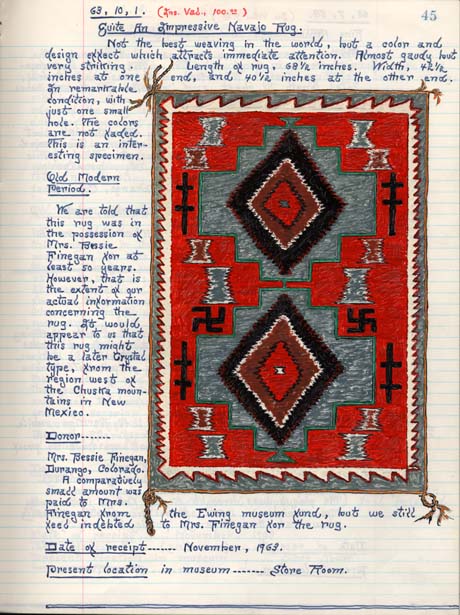 63,10,1. (Ins. Val., 100.00) 45
Quite An Impressive Navajo Rug.
Not the best weaving in the world, but a color and
design effect which attracts immediate attention. Almost gaudy but
very striking. Length of rug, 68 1/2 inches. Width, 42 1/2
inches at one end, and 40 1/2 inches at the other end.
In remarkable
condition, with
just one small
hole. The colors
are not faded.
This is an inter-
esting specimen.
Old Modern
Period.
We are told that
this rug was in
the possession of
Mrs. Bessie
Finegan for at
least 50 years.
However, that is
the extent of our
actual information
concerning the
rug. It would
appear to us that
this rug might
be a later Crystal
type, from the
region west of
the Chuska moun-
tains in New
Mexico.
Donor-------
Mrs. Bessie Finegan,
Durango, Colorado.
A comparatively
small amount was
paid to Mrs.
Finegan from the Ewing museum fund, but we still
feel indebted to Mrs. Finegan for the rug.
Date of receipt------- November, 1963.
Present location in museum------- Store Room.